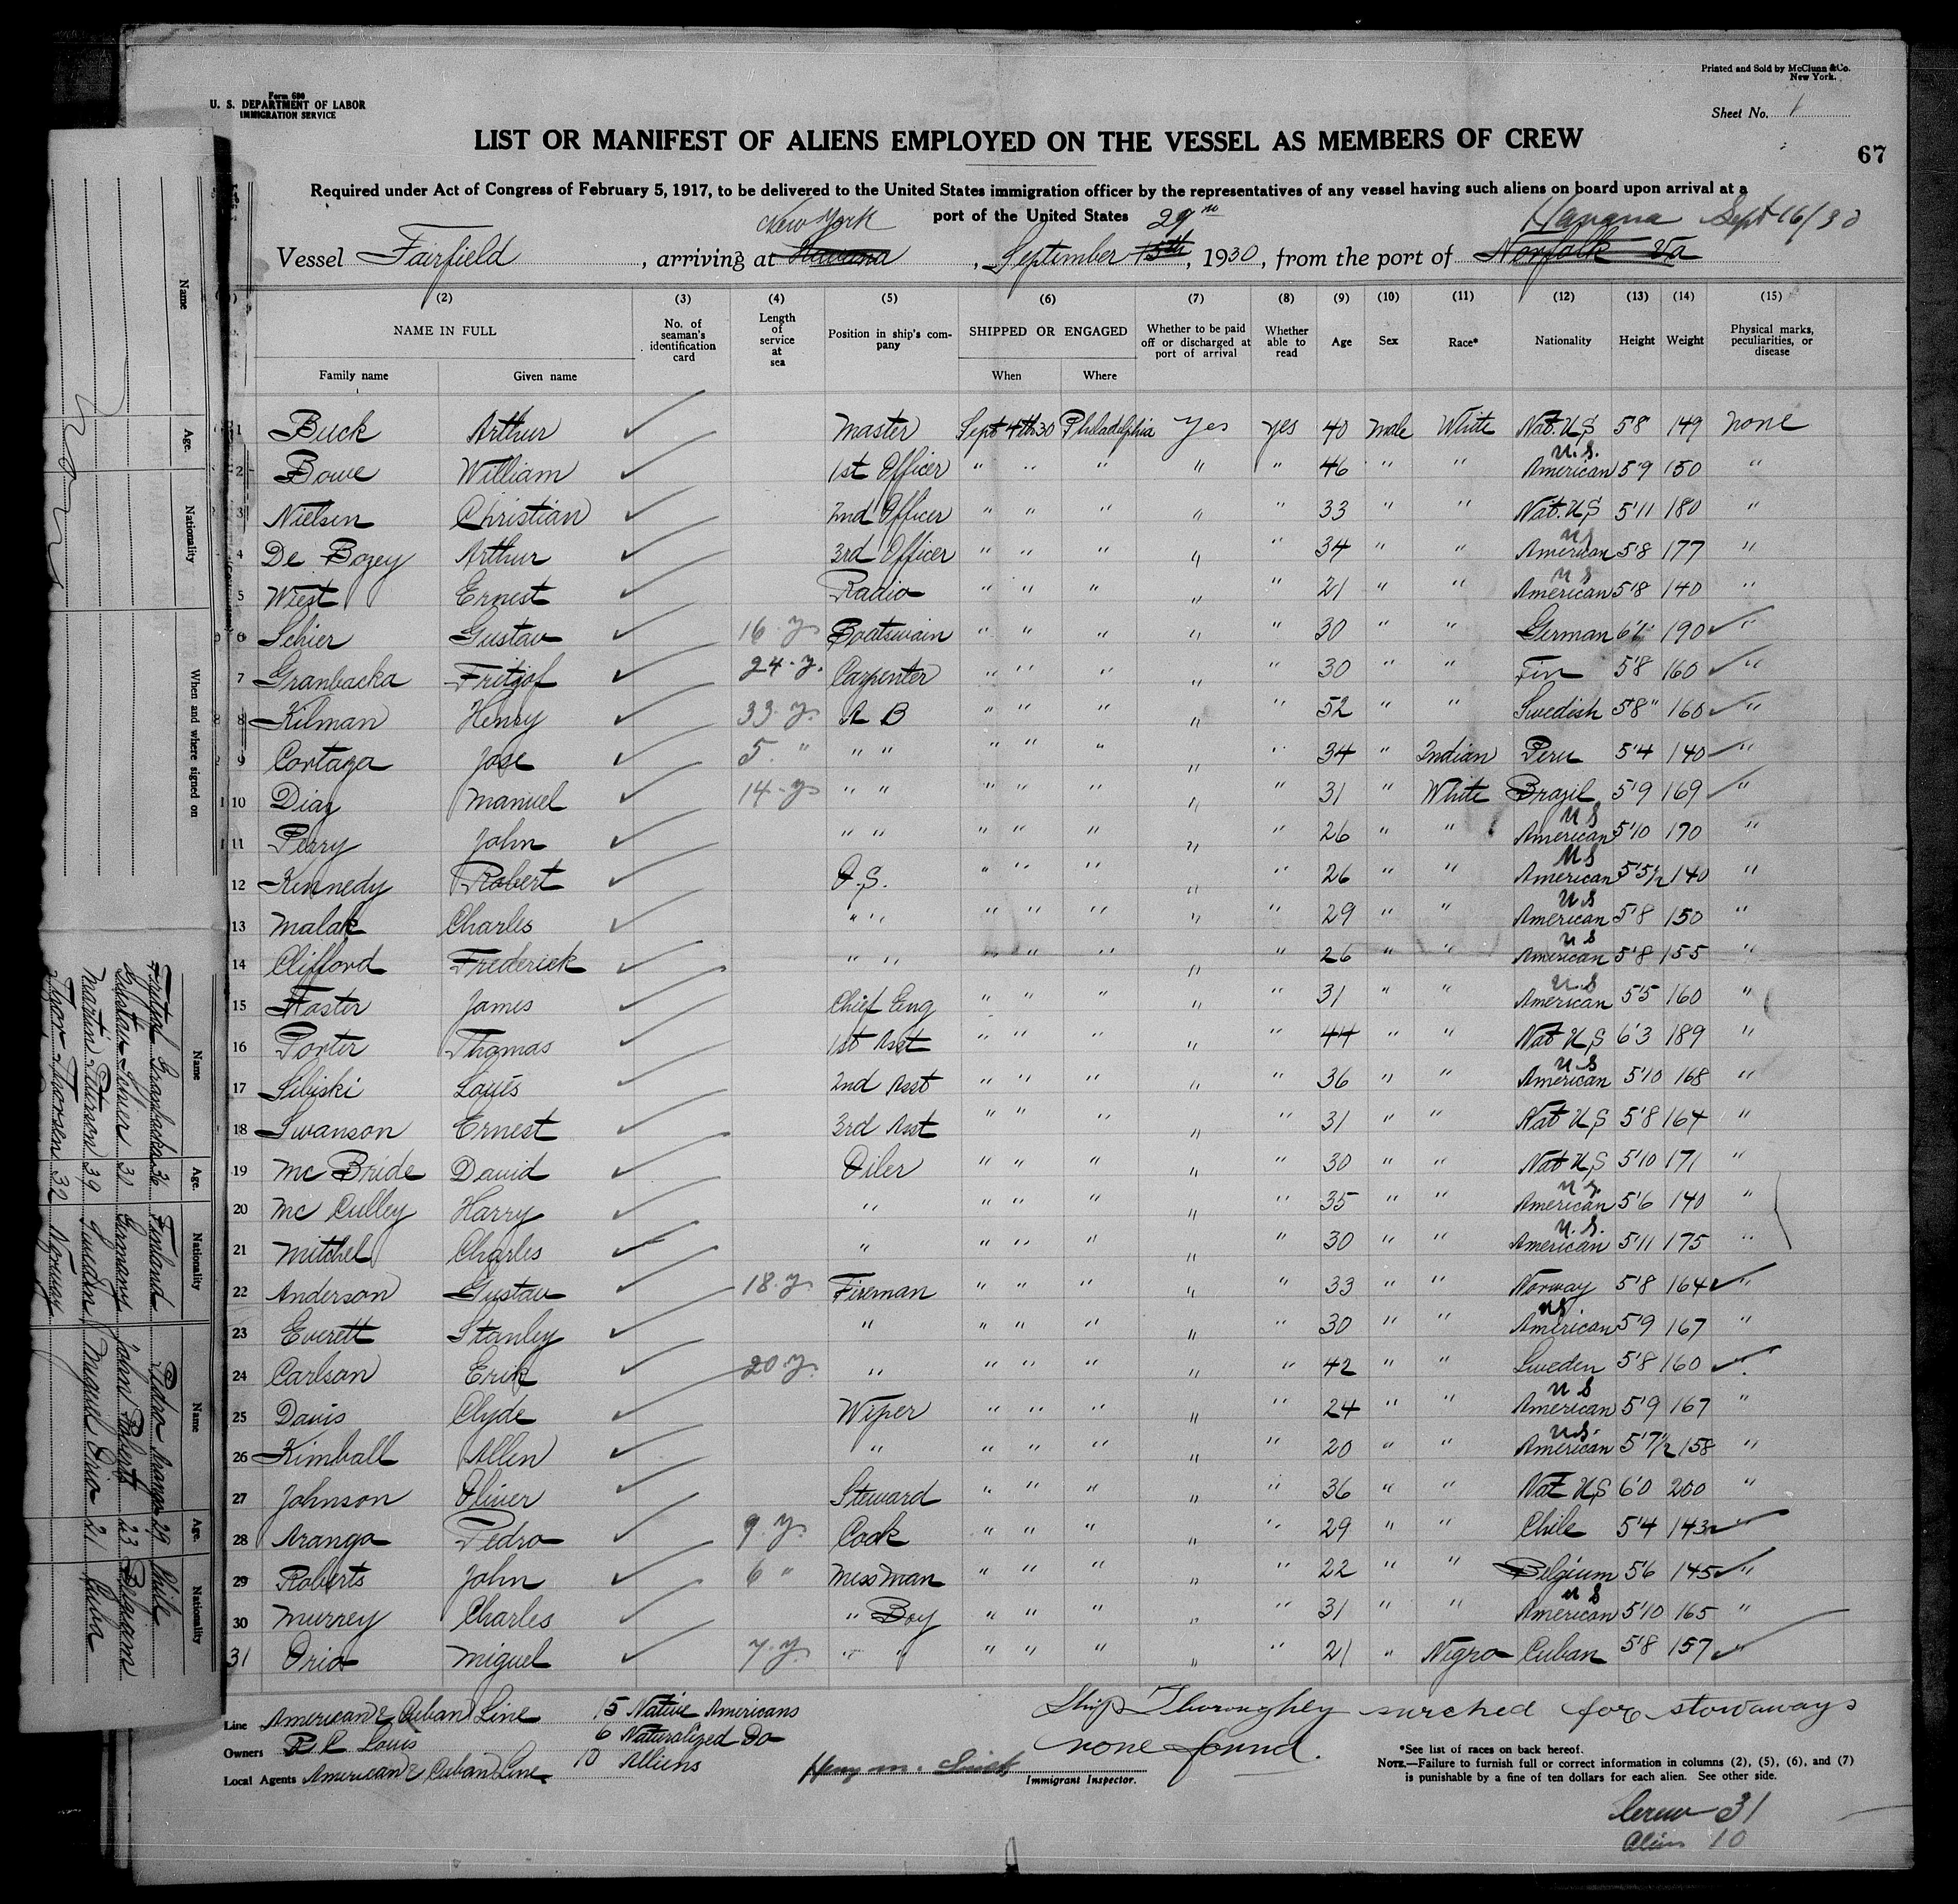 Form 680
U. S. DEPARTMENT OF LABOR
IMMIGRATION SERVICE
Printed and Sold by McClunn & Co.
New York.
Sheet No. 1
LIST OR MANIFEST OF ALIENS EMPLOYED ON THE VESSEL AS MEMBERS OF CREW
67
Required under Act of Congress of February 5, 1917, to be delivered to the United States immigration officer by the representatives of any vessel having such aliens on board upon arrival at a
port of the United States
New York 29th Havana Sept 16/30
Vessel Fairfield, arriving at Havana, September 15th, 1930, from the port of Norfolk Va
(2) (3) (4) (5) (6) (7) (8) (9) (10) (11) (12) (13) (14) (15)
NAME IN FULL No. of seaman's identification card Length of service at sea Position in ship's company SHIPPED OR ENGAGED Whether to be paid off or discharged at port of arrival Whether able to read Age Sex Race* Nationality Height Weight Physical marks, peculiarities, or disease
Family name Given name When Where
1 Buck Arthur Master Sept 4th 30 Philadelphia Yes yes 40 male White Nat. U S 5'8 149 none
2 Bowe William 1st Officer " " " " " 46 " " U.S. American 5'9 150 "
3 Nielsen Christian 2nd Officer " " " " " 33 " " Nat. U S 5'11 180 "
4 De Bozey Arthur 3rd Officer " " " " " 34 " " US American 5'8 177 "
5 Wiest Ernest Radio " " " " " 21 " " U S American 5'8 140 "
6 Schier Gustav 16 y. Boatswain " " " " 30 " " German 190 "
7 Granbacka Fritjof 24 - y. Carpenter " " " " " 30 " " Fin 5'8 160 "
8 Kilman Henry 33 y. A B " " " " " 52 " " Swedish 5'8" 160 "
9 Cortaga Jose 5. " " " " " " " " 34 " Indian Peru 5'4 140 "
10 Diaz Manuel 14 - y " " " " " " " 31 " White Brazil 5'9 169 "
11 Perry John " " " " " " " 26 " " U S American 5'10 170 "
12 Kennedy Robert O.S. " " " " " 26 " " U S American 5'5½ 140 "
13 Malak Charles " " " " " " 29 " " U S American 5'8 150 "
14 Clifford Frederick " " " " " " " 26 " " U S American 5'8 155 "
15 Foster James Chief Eng " " " " " 31 " " U S American 5'5 160 "
16 Porter Thomas 1st Asst " " " " " 44 " " Nat U S 6'3 189 "
17 Sibiski Louis 2nd Asst " " " " " 36 " " U S American 5'10 168 "
18 Swanson Ernest 3rd Asst " " " " " 31 " " Nat U S 5'8 164 "
19 Mc Bride David Oiler " " " " 30 " " Nat U S 5'10 171 "
20 Mc Culley Harry " " " " " " 35 " " U S American 5'6 140 "
21 Mitchel Charles " " " " " " 30 " " U.S. American 5'11 175 "
22 Anderson Gustav 18 y. Fireman " " " " " 33 " " Norway 5'8 164 "
23 Everett Stanley " " " " " " 30 " " US American 5'9 167 "
24 Carlson Erik 20 y. " " " " " " 42 " " Sweden 5'8 160 "
25 Davis Clyde Wiper " " " " " 24 " " U S American 5'9 167 "
26 Kimball Allen " " " " " " 20 " " U.S. American 5'7½ 158 "
27 Johnson Oliver Steward " " " " " 36 " " Nat U S 6'0 200 "
28 Aranga Pedro 9. y. Cook " " " " " 29 " " Chile 5'4 143 "
29 Roberts John 6 " Mess Man " " " " " 22 " " Belgium 5'6 145 "
30 Murrey Charles " Boy " " " " " 31 " " U S American 5'10 165 "
31 Oria Miguel 7. y. " " " " " " " 21 " Nigro Cuban 5'8 157 "
Line American & Cuban Line 15 Native Americans
Owners R R Louis 6 Naturalized Do
Local Agents American & Cuban Line 10 Alliens
Ship Thoroughly surched for stowaways
none found.
Immigrant Inspector.
*See list of races on back hereof.
NOTE.—Failure to furnish full or correct information in columns (2), (5), (6), and (7)
is punishable by a fine of ten dollars for each alien. See other side.
Crew 31
Alien 10
Name Age. Nationality When and where signed on
Name Age. Nationality Name Age. Nationality
Fritjof Granbacka 30 Finland Pedro Aranga 29 Chile
Gustav Schier 30 Germany John Roberts 23 Belgium
Martin Peterson 39 Sweden Miguel Oria 21 Cuba
Thorsen 32 Norway